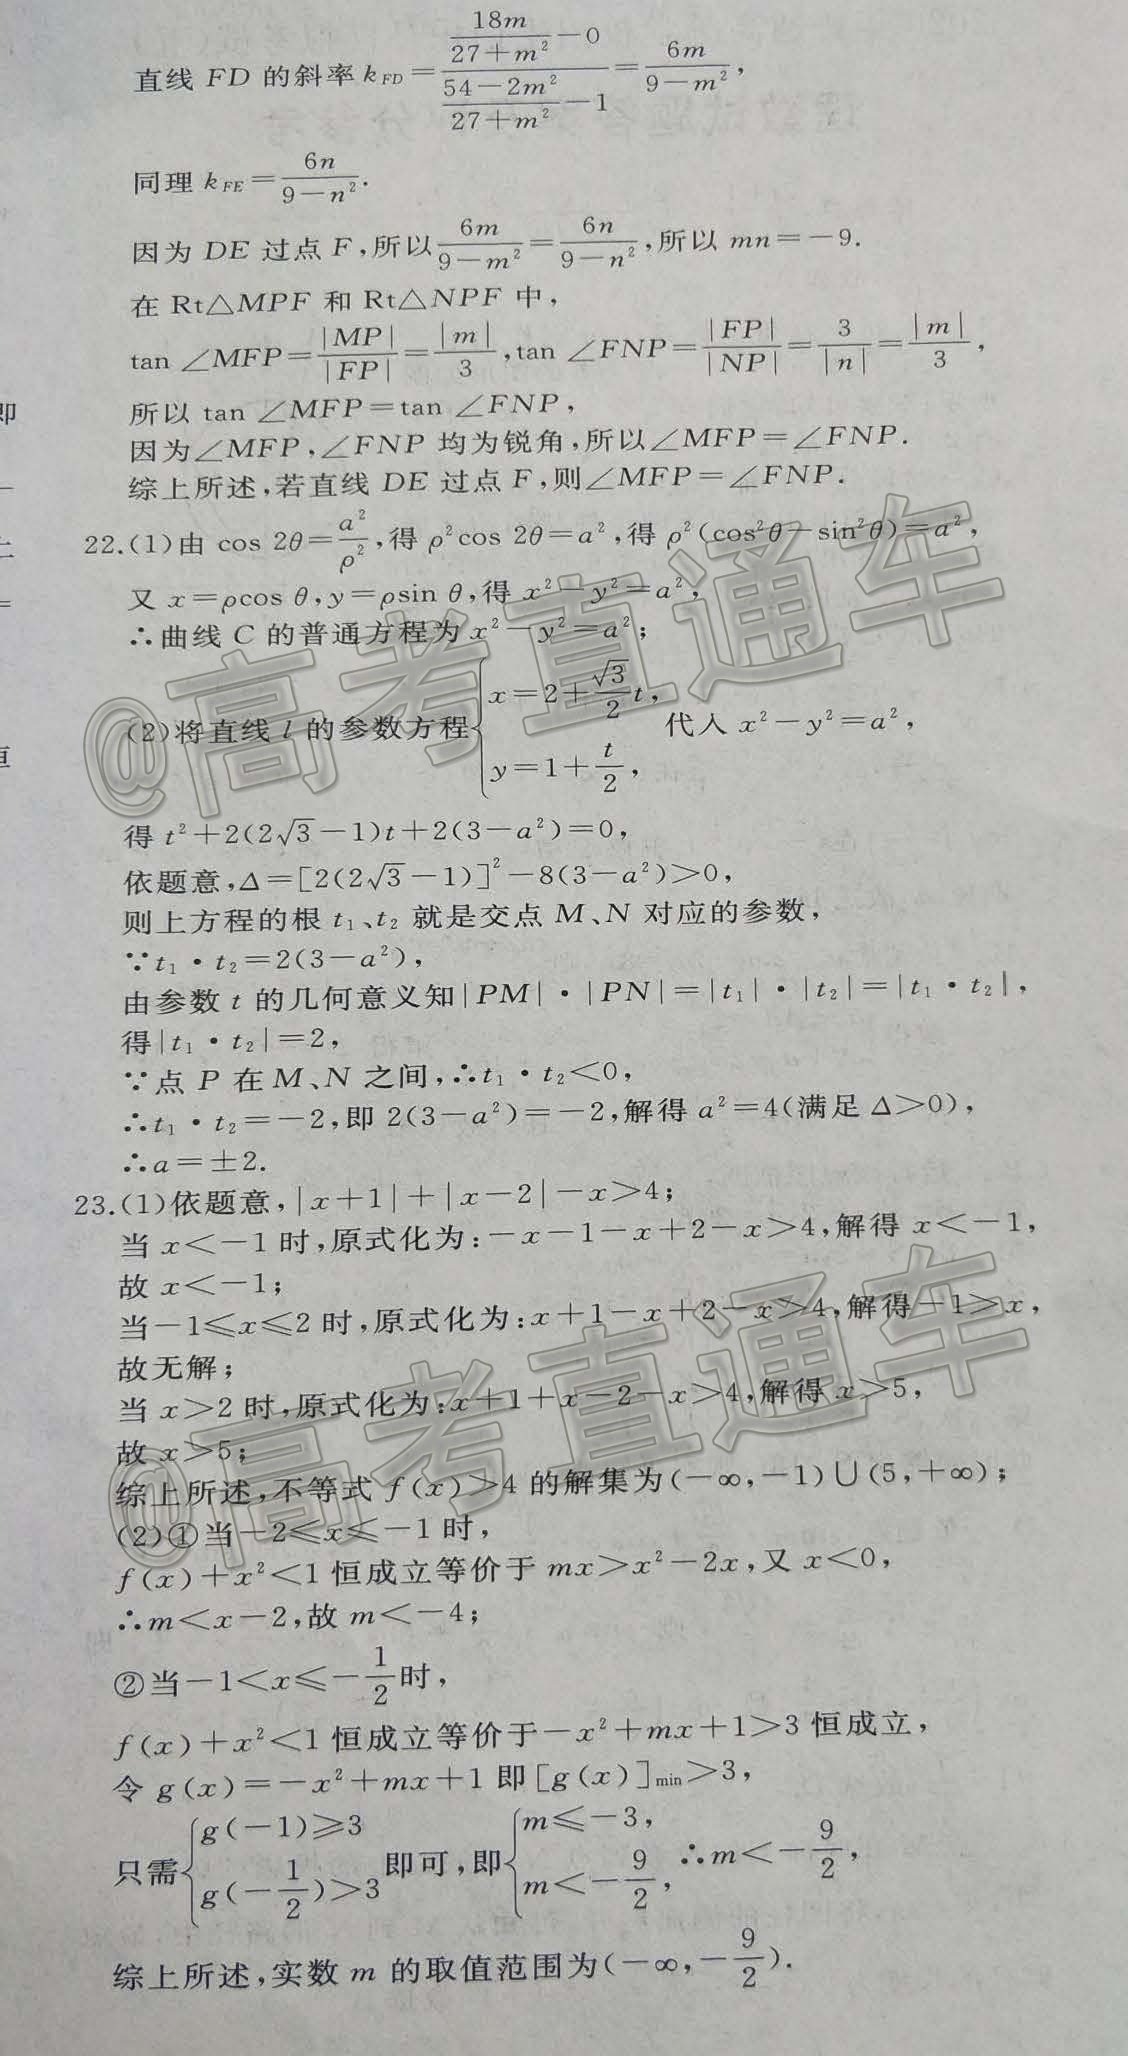 直线 FD 的斜率 k_{FD}=\frac{\frac{18m}{27+m^2}-0}{\frac{54-2m^2}{27+m^2}-1}=\frac{6m}{9-m^2},
同理 k_{FE}=\frac{6n}{9-n^2}.
因为 DE 过点 F,所以\frac{6m}{9-m^2}=\frac{6n}{9-n^2},所以 mn=-9.
在 Rt△MPF 和 Rt△NPF 中,
tan ∠MFP=\frac{|MP|}{|FP|}=\frac{|m|}{3},tan ∠FNP=\frac{|FP|}{|NP|}=\frac{3}{|n|}=\frac{|m|}{3},
所以 tan ∠MFP=tan ∠FNP,
因为∠MFP,∠FNP 均为锐角,所以∠MFP=∠FNP.
综上所述,若直线 DE 过点 F,则∠MFP=∠FNP.
22.(1)由 cos 2θ=\frac{a^2}{ρ^2},得 ρ²cos 2θ=a²,得 ρ²(cos²θ-sin²θ)=a²,
又 x=ρcos θ,y=ρsin θ,得 x²-y²=a²,
∴曲线 C 的普通方程为 x²-y²=a²;
(2)将直线 l 的参数方程\begin{cases}x=2+\frac{\sqrt{3}}{2}t,\\y=1+\frac{t}{2},\end{cases}代入 x²-y²=a²,
得 t²+2(2√3-1)t+2(3-a²)=0,
依题意,Δ=[2(2√3-1)]²-8(3-a²)>0,
则上方程的根 t₁、t₂ 就是交点 M、N 对应的参数,
∵t₁·t₂=2(3-a²),
由参数 t 的几何意义知|PM|·|PN|=|t₁|·|t₂|=|t₁·t₂|,
得|t₁·t₂|=2,
∵点 P 在 M、N 之间,∴t₁·t₂<0,
∴t₁·t₂=-2,即 2(3-a²)=-2,解得 a²=4(满足 Δ>0),
∴a=±2.
23.(1)依题意,|x+1|+|x-2|-x>4;
当 x<-1 时,原式化为:-x-1-x+2-x>4,解得 x<-1,
故 x<-1;
当-1≤x≤2 时,原式化为:x+1-x+2-x>4,解得-1>x,
故无解;
当 x>2 时,原式化为:x+1+x-2-x>4,解得 x>5,
故 x>5;
综上所述,不等式 f(x)>4 的解集为(-∞,-1)∪(5,+∞);
(2)①当-2≤x≤-1 时,
f(x)+x²<1 恒成立等价于 mx>x²-2x,又 x<0,
∴m<x-2,故 m<-4;
②当-1<x≤-\frac{1}{2}时,
f(x)+x²<1 恒成立等价于-x²+mx+1>3 恒成立,
令 g(x)=-x²+mx+1 即[g(x)]_{min}>3,
只需\begin{cases}g(-1)≥3\\g(-\frac{1}{2})>3\end{cases}即可,即\begin{cases}m≤-3,\\m<-\frac{9}{2},\end{cases}∴m<-\frac{9}{2},
综上所述,实数 m 的取值范围为(-∞,-\frac{9}{2}).
@高考直通车
@高考直通车